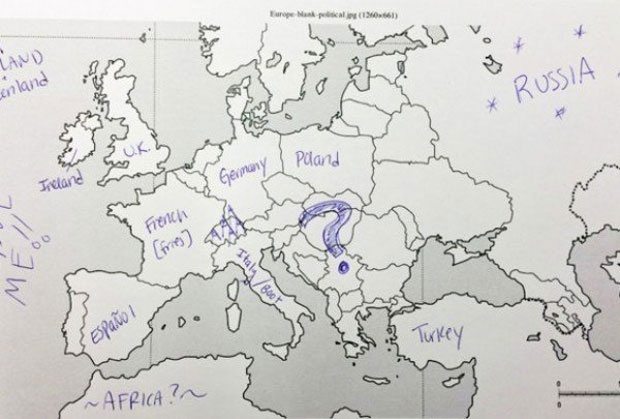 Europe-blank-political.jpg (1260×661)
LAND
enland
RUSSIA
U.K.
Ireland
Germany
Poland
French
[fries]
?
ME!!
Italy/Boot
ESPAÑOL
Turkey
~AFRICA?~